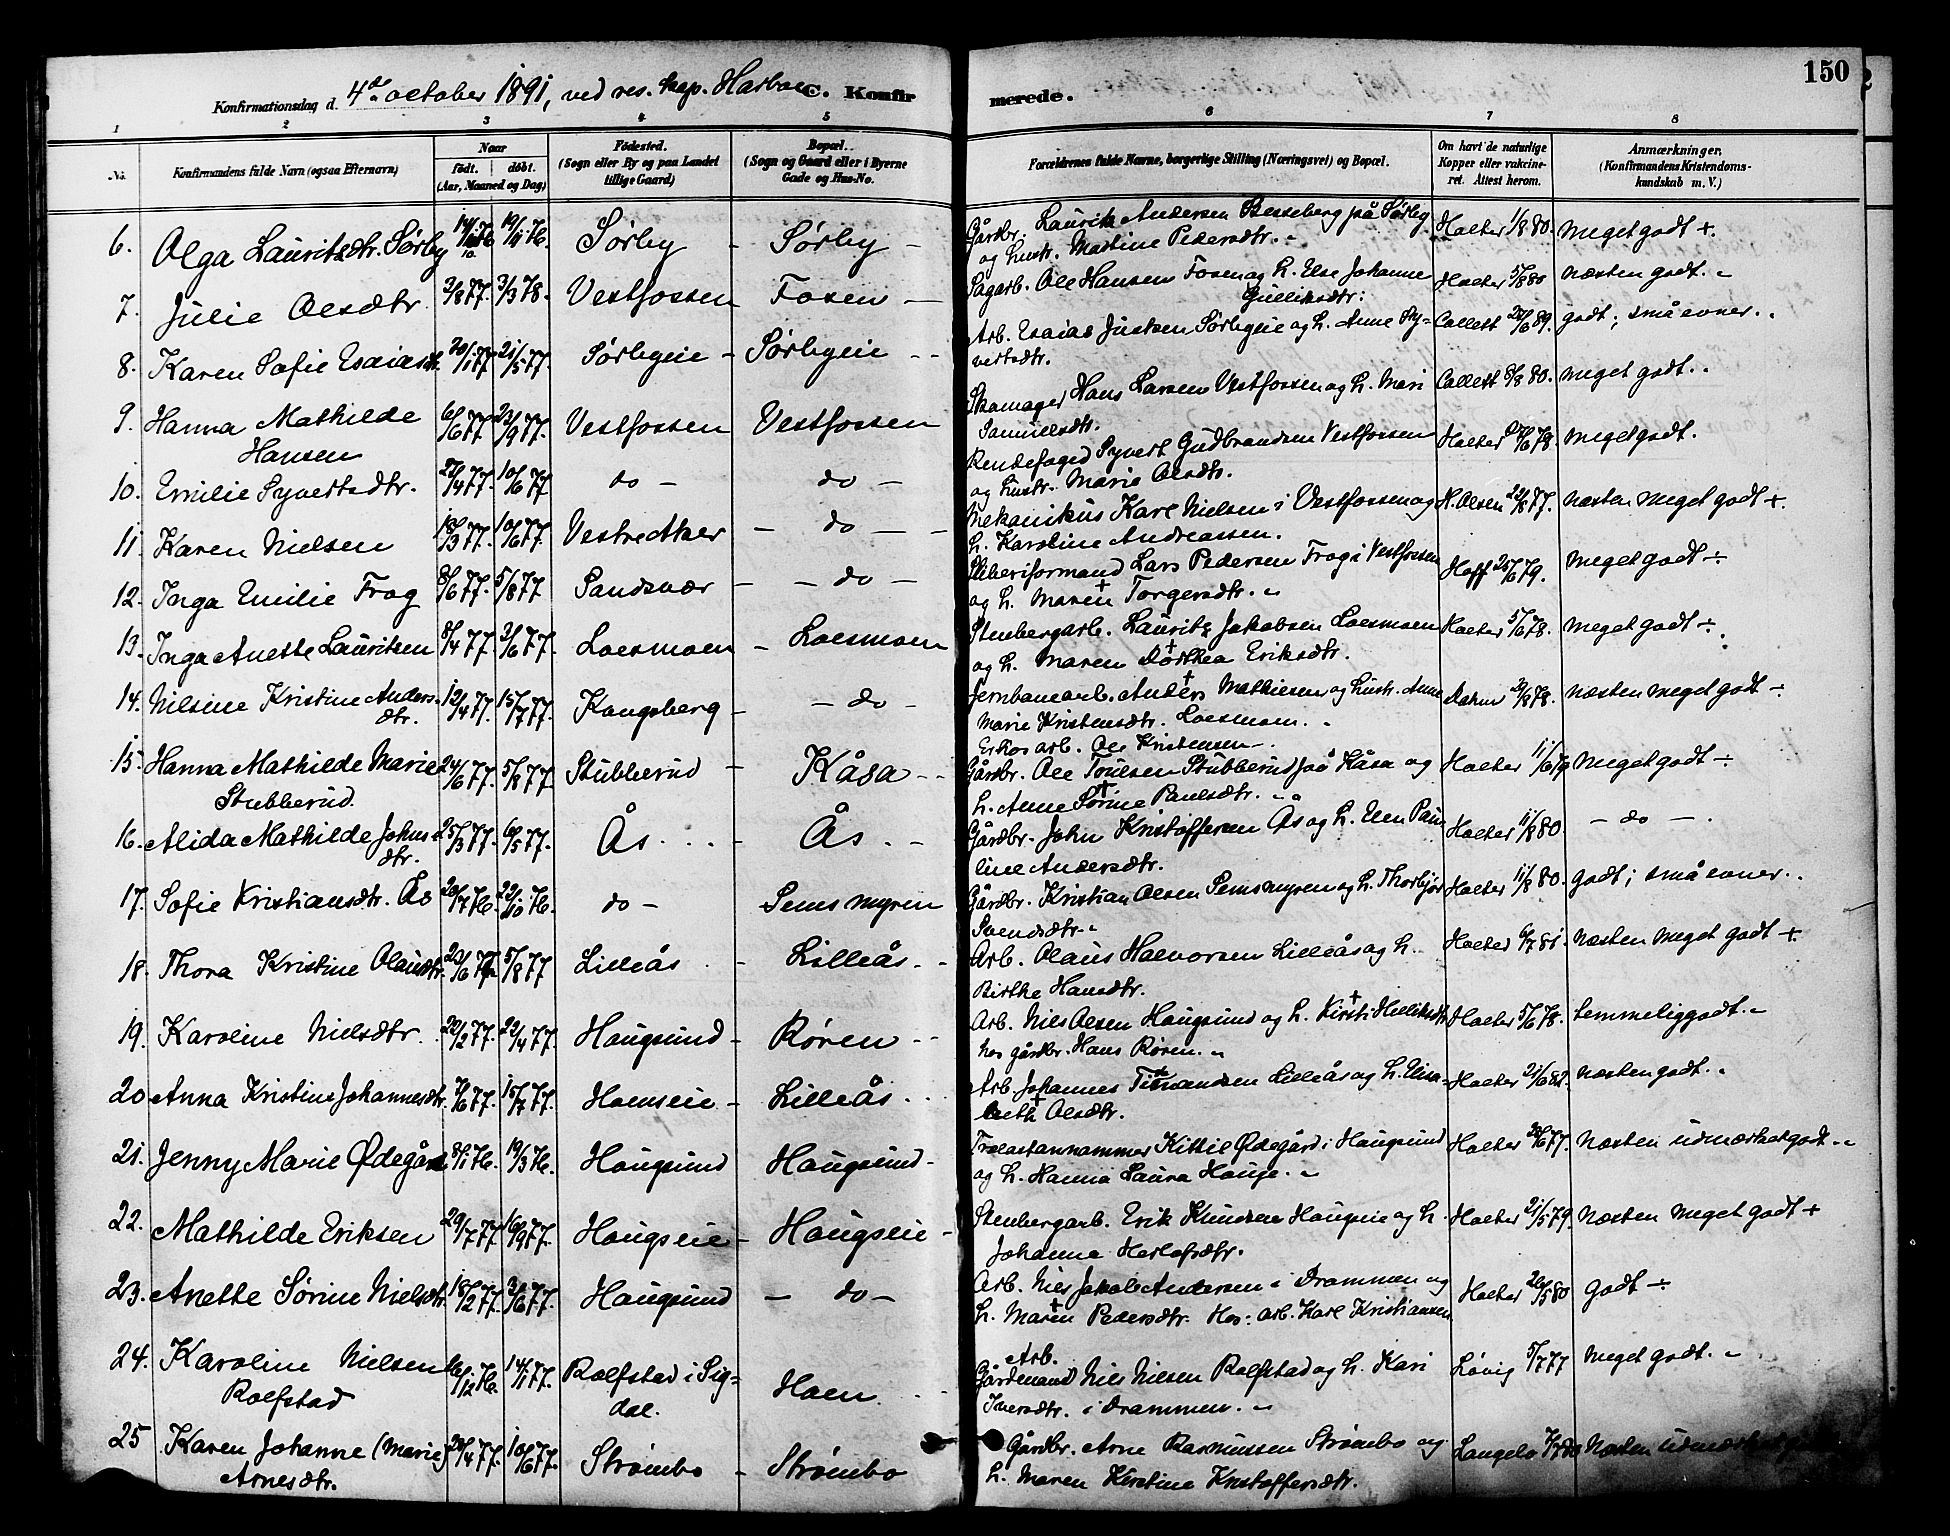 150
Konfirmationsdag d. 4de october 1891, ved res. kap. C. Konfirmerede.
1 2 3 4 5 6 7 8
No. Konfirmandens fulde Navn (ogsaa Efternavn) Naar født. døbt. (Aar, Maaned og Dag) Fødested. (Sogn eller By og paa Landet tillige Gaard) Bopæl. (Sogn og Gaard eller i Byerne Gade og Hus-No. Forældrenes fulde Navne, borgerlige Stilling (Næringsvei) og Bopæl. Om havt de naturlige Kopper eller vaccineret. Attest herom. Anmærkninger, (Konfirmandens Kristendomskundskab m. V.)
6. Olga Lauritsdtr. Sørby 19/11 76. Sørby - Sørby - Gårdbr. Laurits Andersen Besseberg på Sørby Holter 1/8 80. Meget godt +.
og hustr. Martine Pedersdtr.
7. Julie Olsdtr 3/3 78. Vestfossen Fosen - Sagarb. Ole Hansen Fosen og h. Else Johanne Holter 5/8 80 Næsten godt.
Gulliksdtr:
8. Karen Sofie Esaiasdtr. 20/1 77 21/5 77. Sørbyeie - Sørbyeie - Arb. Esaias Justsen Sørbyeie og h. Anne Sy- Collett godt; små evner.
vertsdtr.
9. Hanna Mathilde 6/6 77 23/9 77. Vestfossen Vestfossen Skomager Hans Larsen Vestfossen og h. Mari Collett 8/8 80. Meget godt.
Hansen Samuelsdtr.
10. Emilie Syvertsdtr. 27/4 77. 10/6 77 do - do - Rendefoged Syvert Gudbrandsen Vestfossen Holter 27/6 78. Meget godt.
og hustr. Marie Olsdtr.
11. Karen Nielsen 18/3 77. 10/6 77. Vestre Aker - do - Mekanikus Karl Nielsen i Vestfossen og N. Olsen 22/8 77. Næsten meget godt +.
h. Karoline Andreassen.
12. Inga Emilie Frog 8/6 77. 5/8 77 Sandsvær - do - Sliberiformand Lars Pedersen Frog i Vestfossen Hoff 25/6 79. Meget godt ÷
og h. Maren Torgersdtr.
13. Inga Anette Lauritsen 8/4 77. 3/6 77. Loesmoen - Loesmoen Stenbergarb. Laurits Jakobsen Loesmoen Holter 5/6 78. Meget godt ÷
og h. Maren Dorthea Eriksdtr.
14. Nilsine Kristine Anders- 12/4 77. 15/7 77. Kongsberg - do - Jernbanearb. Anders Mathiesen og hustr. Anne næsten meget godt ÷
dtr. Marie Kristensdtr. Loesmoen.
Ole Kristensen
15. Hanna Mathilde Marie 24/6 77. 5/8 77. Stubberud - Kåsa - Gårdbr. Ole Stubberud på Kåsa og Holter 11/6 79 Meget godt ÷
Stubberud. h. Anne Sørine Paulsdtr.
16. Alida Mathilde Johns- 25/3 77. 6/5 77. Ås - Ås - Gårdbr. John Kristoffersen Ås og h. Elen Pau Holter 11/8 80. - do -.
dtr. line Andersdtr.
17. Sofie Kristiansdtr. Ås 20/7 76. 22/10 76. do - Semsmyren Gårdbr. Kristian Olsen Semsmyren og h. Thorbjør Holter 11/8 80. godt; små evner.
Svendsdtr.
18. Thora Kristine Olausdtr. 5/8 77 Lilleås - Lilleås - Arb. Olaus Halvorsen Lilleås og h. Holter 6/7 81. Næsten meget godt +.
Birthe Hansdtr.
19. Karoline Nielsdtr. 22/2 77. 22/4 77. Hougsund - Røren - Arb. Niels Olsen Hougsund og h. Kirsti Helliksdtr Holter 5/6 78. temmelig godt.
hos gårdbr. Hans Røren.
20 Anna Kristine Johannesdtr. 7/6 77. 15/7 77. Hoenseie - Lilleås Arb. Johannes Lilleås og h. Elisa- Holter 21/6 82. næsten godt.
beth Olsdtr.
21. Jenny Marie Ødegård 8/1 76. 19/3 76. Hougsund Hougsund - Kittil Ødegård i Hougsund Holter Næsten udmærket godt.
og h. Hanna Laura Houge.
22. Mathilde Eriksen 29/7 77. 16/9 77. Hougseie - Hougseie - Stenbergarb. Erik Knudsen Hougseie og h. Holter 21/5 79. Næsten meget godt +
Johanna Herlofsdtr.
23. Anette Sørine Nielsdtr. 18/2 77. 3/6 77. Hougsund - do - Arb. Niels Jakob Andersen i Drammen og Holter 26/5 80 godt ÷
h. Maren Pedersdtr. Hos: arb. Karl Kristiansen
24. Karoline Nielsen 14/1 77. Rolfstad i Sig- Hoen Arb. Gårdmand Niels Nielsen Rolfstad og h. Kari Løvig 5/7 77 Meget godt.
Rolfstad dal. Iversdtr. i Drammen.
25 Karen Johanne (Marie) 20/4 77. 10/6 77. Strømbo - Strømbo Gårdbr. Arne Rasmussen Strømbo og Langelo Næsten udmærket
Arnesdtr. h. Maren Kirstine Kristoffersdtr.